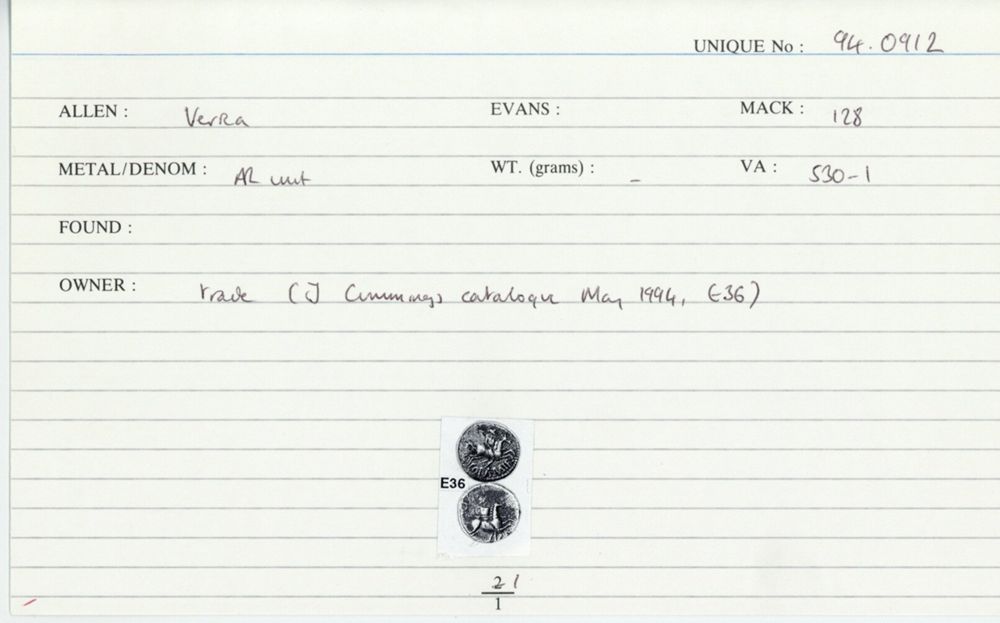 UNIQUE No : 94.0912
ALLEN : Verra EVANS : MACK : 128
METAL/DENOM : AR unit WT. (grams) : – VA : 530-1
FOUND :
OWNER : trade (J Cummings catalogue May 1994, E36)
E36
21
1